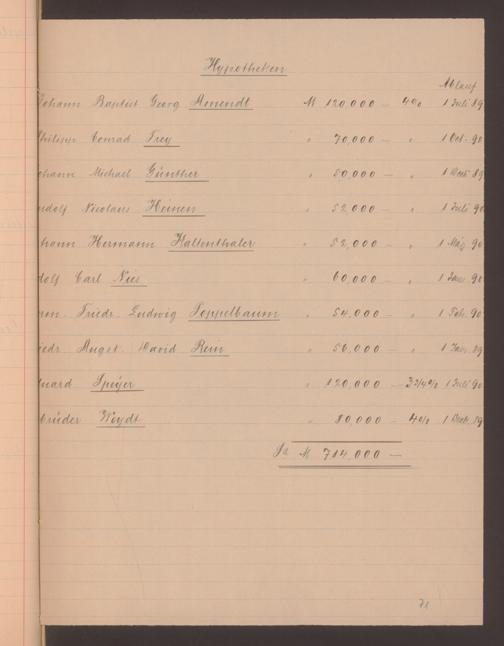 Hypotheken
Ablauf
Johann Baptist Georg Amendt M 120,000 — 4% 1 Juli 89
Philipp Conrad Frey " 70,000 — " 1 Oct. 90
ohann Michael Günther " 50,000 — " 1 89
udolf Nicolaus Heinen " 52,000 — " 1 Juli 90
hann Hermann Kallenthaler " 52,000 — " 1 90
dolf Carl Nies " 60,000 — " 1 Jan. 90
Friedr. Ludwig Poppelbaum " 54,000 — " 1 Feb. 90
iedr. August David Rein " 56,000 — " 1 Jan. 89
duard Speyer " 120,000 — 3 3/4% 1 Juli 90
brüder Woydt " 80,000 — 4% 1 89
M 714,000 —